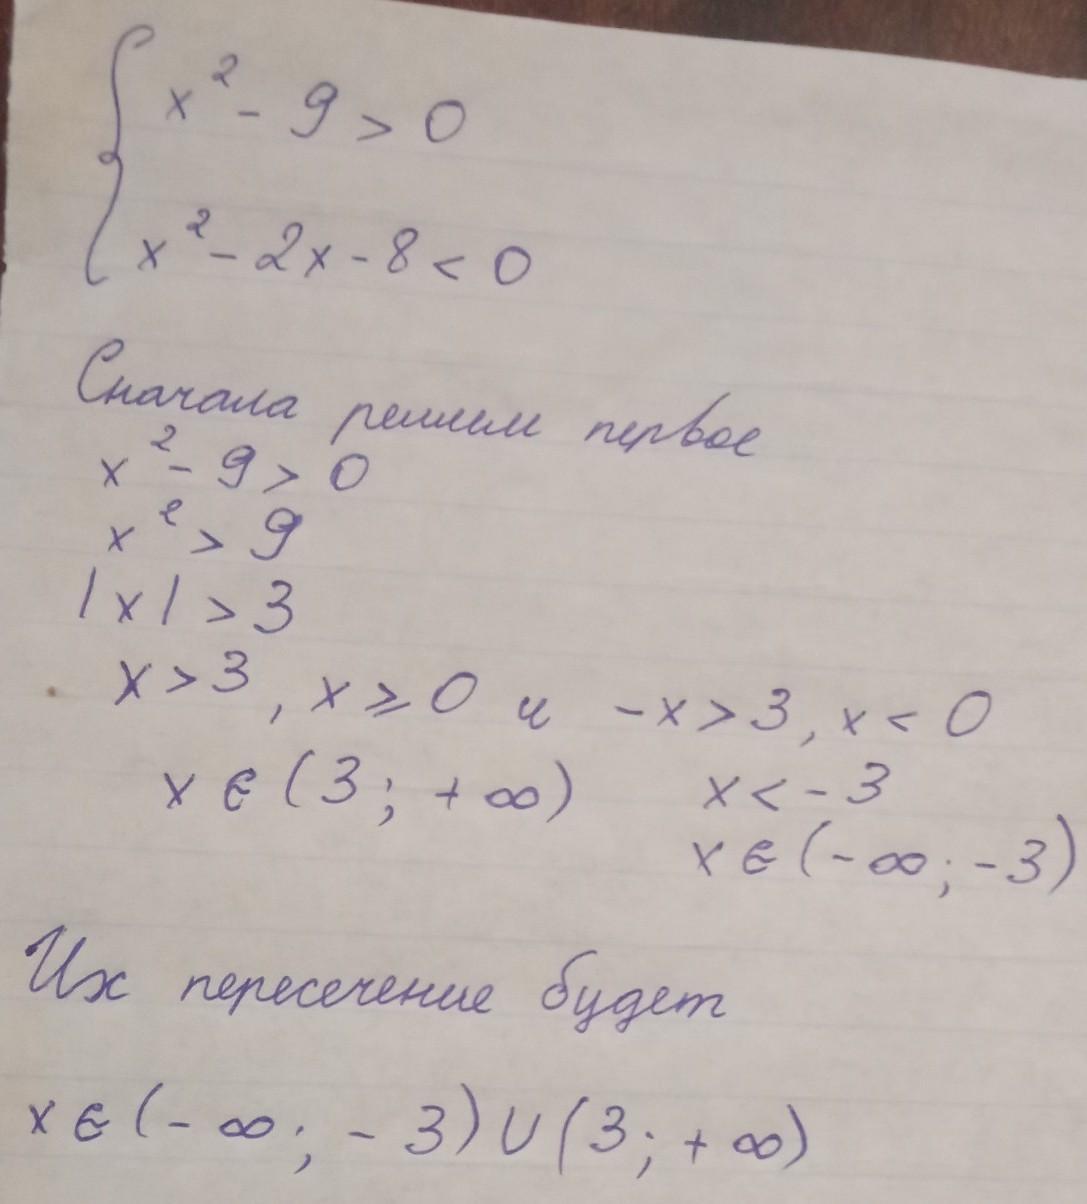 x² - 9 > 0
x² - 2x - 8 < 0
Сначала решим первое
x² - 9 > 0
x² > 9
|x| > 3
x > 3, x ⩾ 0 и -x > 3, x < 0
x ∈ (3; +∞) x < -3
x ∈ (-∞; -3)
Их пересечение будет
x ∈ (-∞; -3) ∪ (3; +∞)